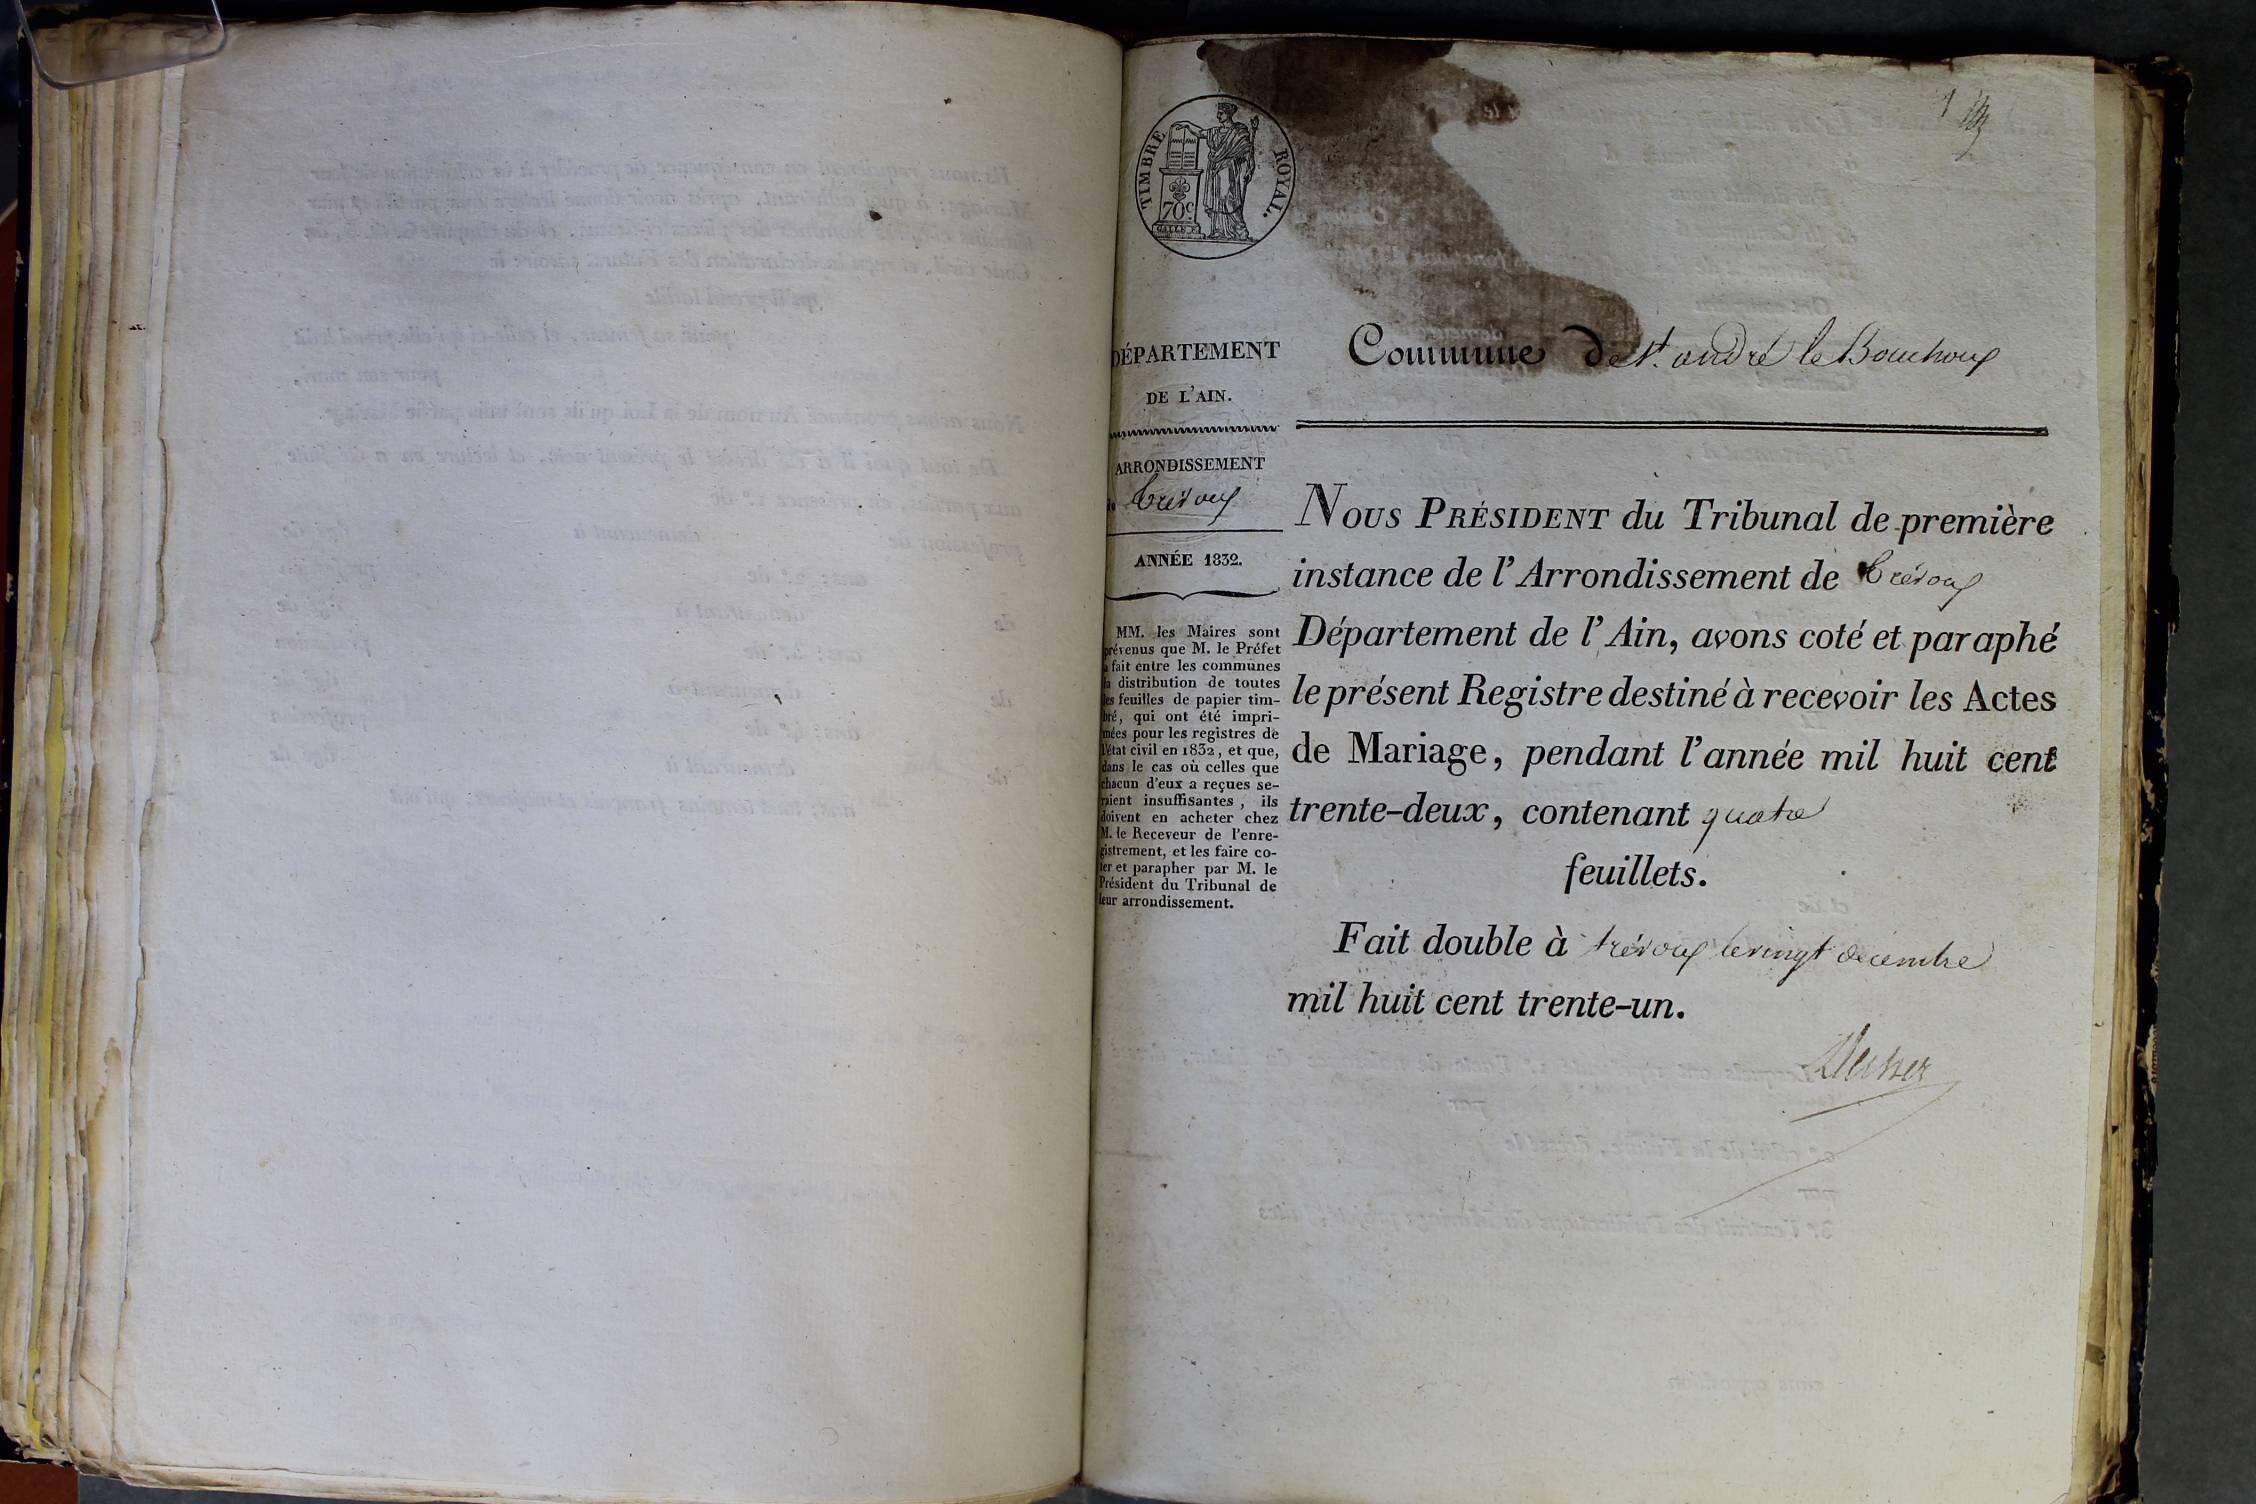 TIMBRE ROYAL.
70 c
GALLE F.
1
DÉPARTEMENT
DE L'AIN.
ARRONDISSEMENT
de Trévoux
ANNÉE 1832.
MM. les Maires sont
prévenus que M. le Préfet
a fait entre les communes
la distribution de toutes
les feuilles de papier tim-
bré, qui ont été impri-
mées pour les registres de
l'état civil en 1832, et que,
dans le cas où celles que
chacun d'eux a reçues se-
raient insuffisantes, ils
doivent en acheter chez
M. le Receveur de l'enre-
gistrement, et les faire co-
ter et parapher par M. le
Président du Tribunal de
leur arrondissement.
Commune De St. andré le Bouchoux
NOUS PRÉSIDENT du Tribunal de première
instance de l'Arrondissement de Trévoux
Département de l'Ain, avons coté et paraphé
le présent Registre destiné à recevoir les Actes
de Mariage, pendant l'année mil huit cent
trente-deux, contenant quatre
feuillets.
Fait double à trévoux le vingt décembre
mil huit cent trente-un.